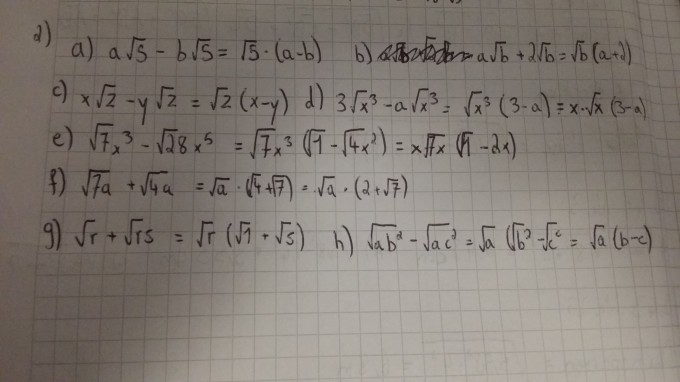 2)
a) a√5 - b√5 = √5·(a-b)   b) a√b + 2√b = √b(a+2)
c) x√2 - y√2 = √2(x-y)   d) 3√x³ - a√x³ = √x³(3-a) = x·√x(3-a)
e) √7x³ - √28x⁵ = √7x³(√1 - √4x²) = x√7x(√1 - 2x)
f) √7a + √4a = √a·(√4+√7) = √a·(2+√7)
g) √r + √rs = √r(√1 + √s)   h) √ab² - √ac² = √a(√b² - √c² = √a(b-c)